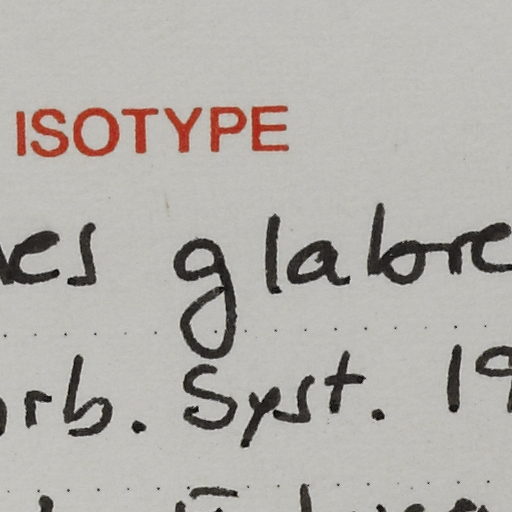 ISOTYPE
es glabre
rb. Syst. 19